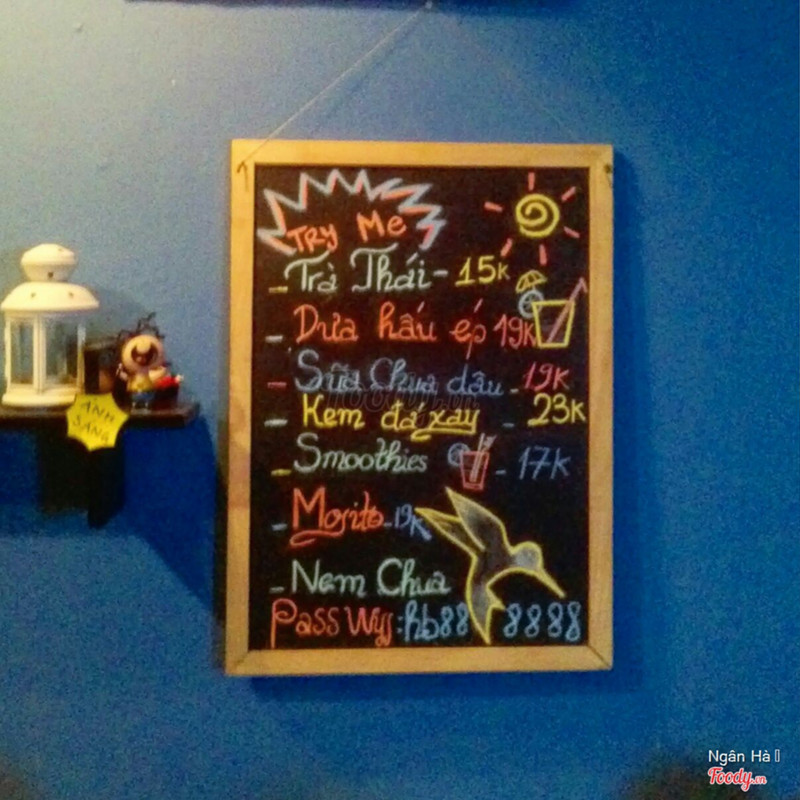 TRY Me
- Trà Thái - 15K
- Dưa hấu ép 19K
- Sữa Chua dâu - 19K
- Kem đá xay - 23K
- Smoothies - 17K
- Mojito - 19K
- Nem Chua
Pass Wyf: hb88 8888
ÁNH SÁNG
Ngân Hà
Foody.vn